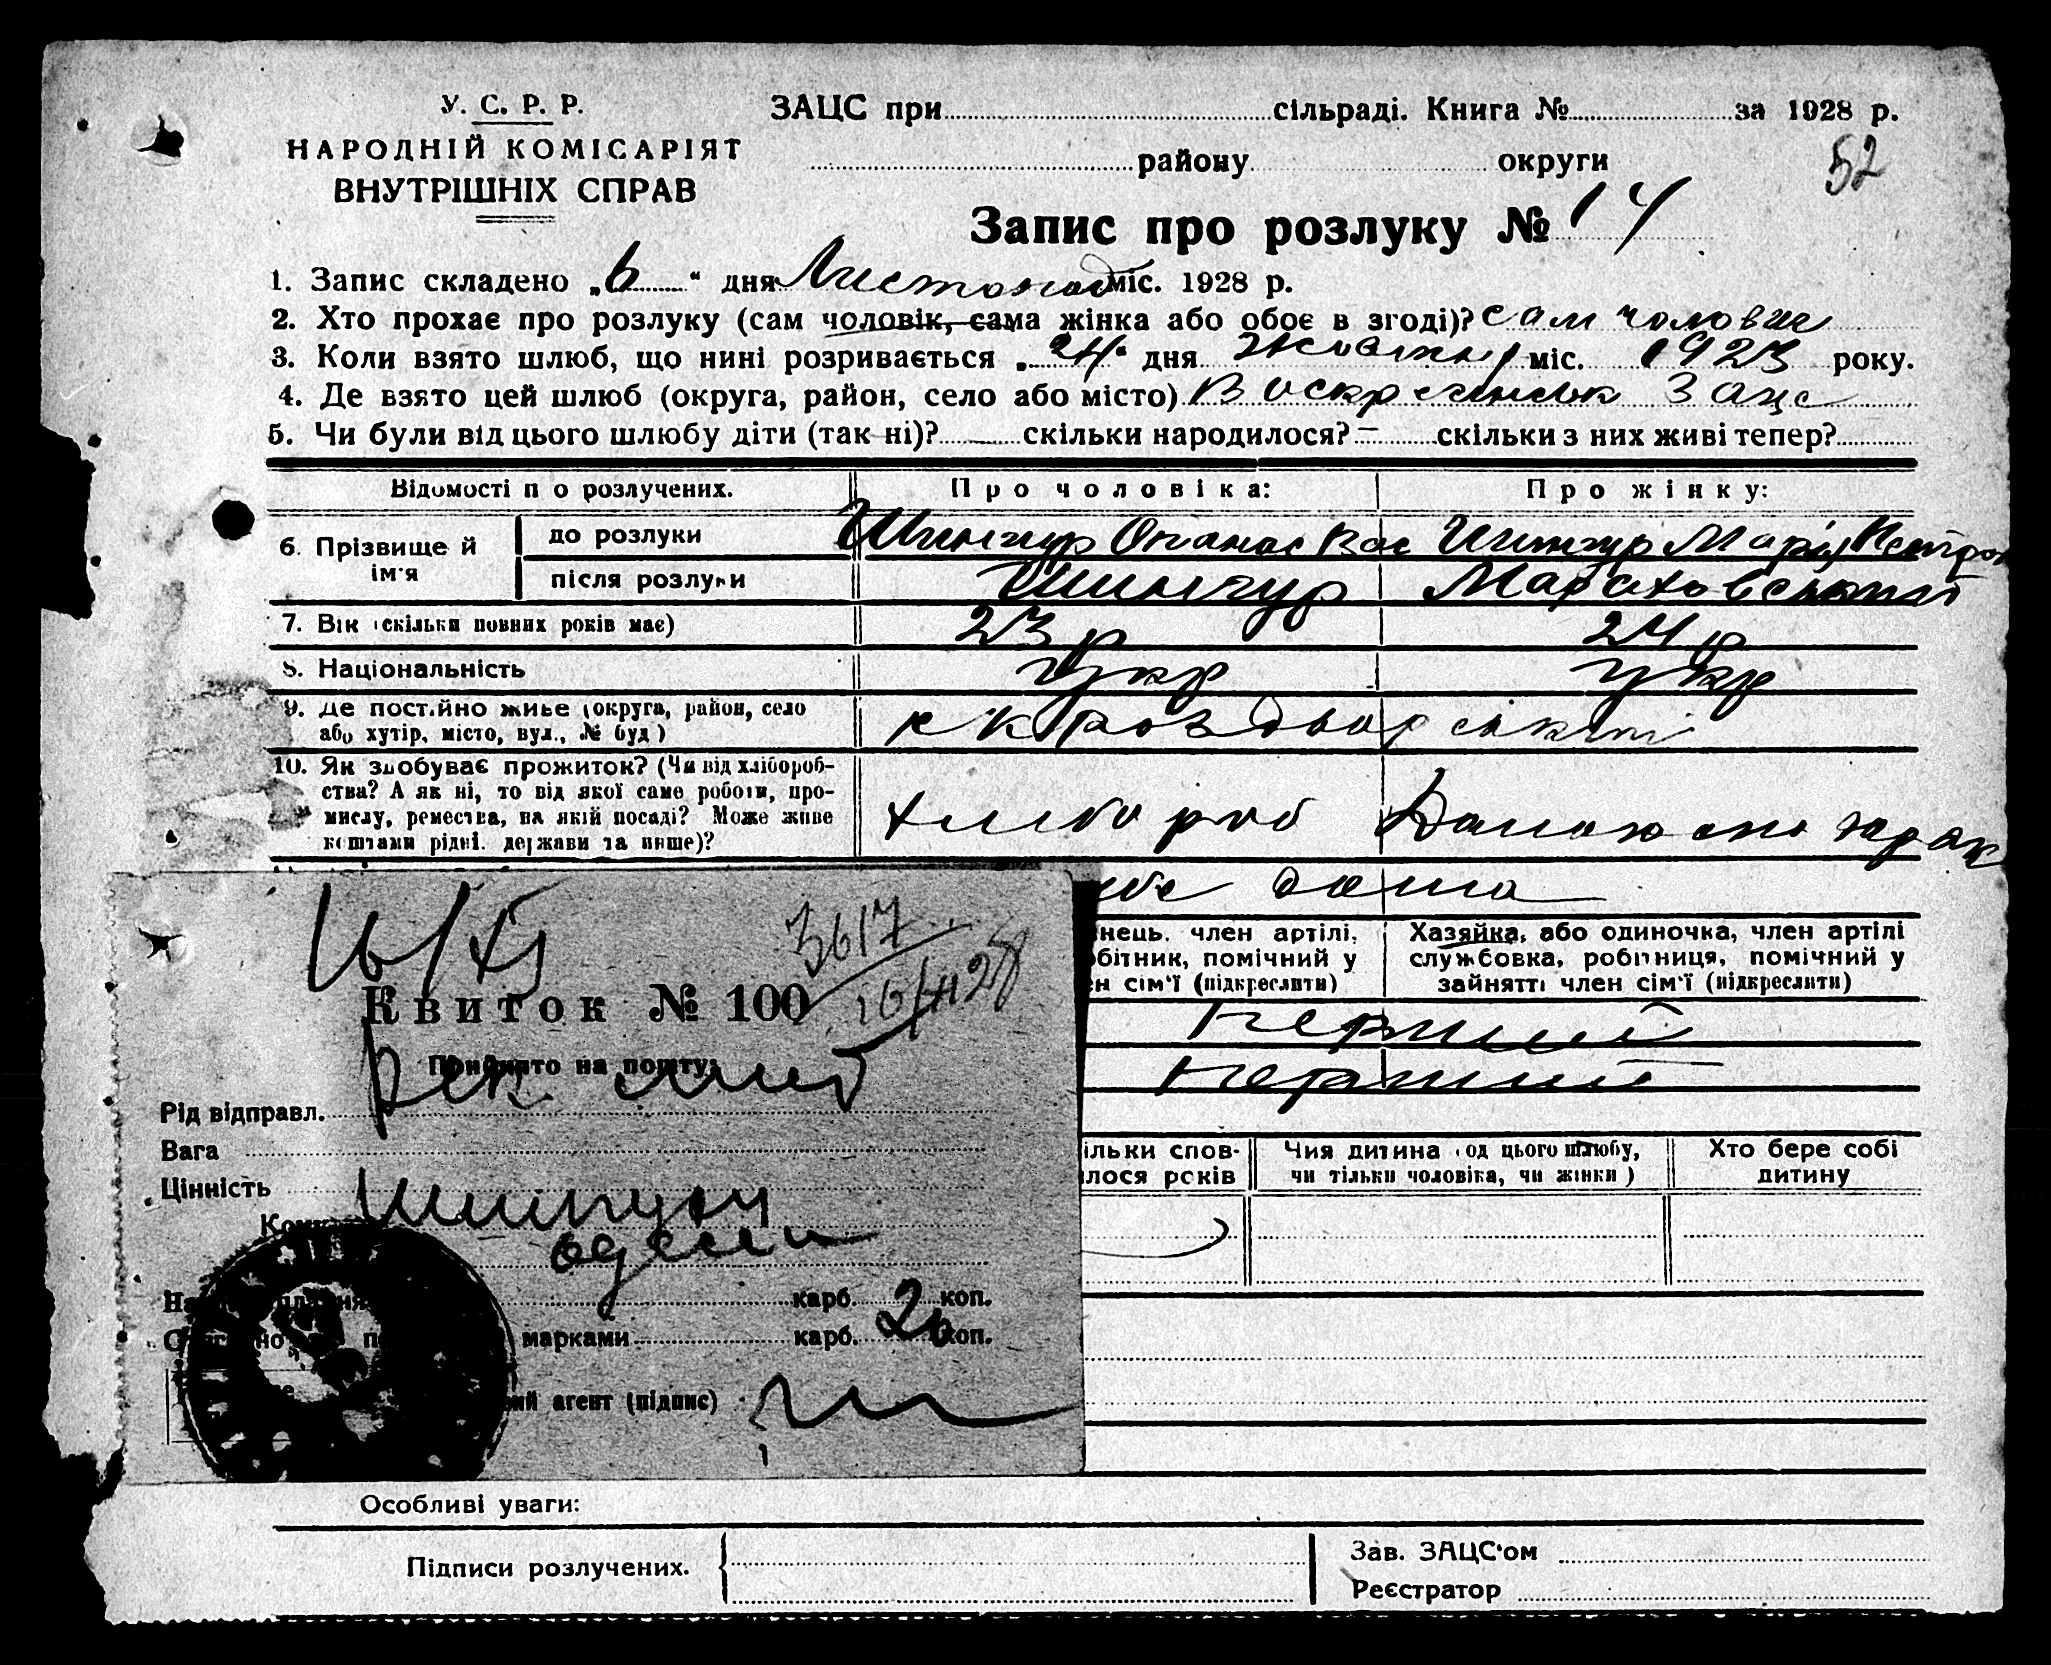 У. С. Р. Р.
НАРОДНІЙ КОМІСАРІЯТ
ВНУТРІШНІХ СПРАВ
ЗАЦС при сільраді. Книга № за 1928 р.
району округи
52
Запис про розлуку № 14
1. Запис складено „6“ дня Листопад міс. 1928 р.
2. Хто прохає про розлуку (сам чоловік, сама жінка або обоє в згоді)? сам чоловік
3. Коли взято шлюб, що нині розривається „24“ дня Жовтня міс. 1923 року.
4. Де взято цей шлюб (округа, район, село або місто) Воскресенськ Зацс
5. Чи були від цього шлюбу діти (так ні)? скільки народилося? — скільки з них живі тепер?
Відомості п о розлучених. Про чоловіка: Про жінку:
6. Прізвище й ім'я
до розлуки Шингур Опанас Вас Шингур Марія Петров
після розлуки Шингур
7. Вік (скільки повних років має) 23 р 24 р
8. Національність укр укр
9. Де постійно живе (округа, район, село
або хутір, місто, вул., № буд)
10. Як здобуває прожиток? (Чи від хлібороб-
ства? А як ні, то від якої саме роботи, про-
мислу, ремества, на якій посаді? Може живе
коштами рідні, держави та инше)?
хлибороб
нець, член артілі, Хазяйка, або одиночка, член артілі
бітник, помічний у службовка, робітниця, помічний у
н сім'ї (підкреслити) зайнятті член сім'ї (підкреслити)
Перший
Перший
ільки спов-
лося років
Чия дитина (од цього шлюбу,
чи тільки чоловіка, чи жінки)
Хто бере собі
дитину
16/XI
3617
16/XI 28
Квиток № 100
Прийнято на пошту:
Рід відправл. Рек лист
Вага
Цінність
Кому Шингуру
Одеса
карб. 2 коп.
марками карб. коп.
ий агент (підпис)
Особливі уваги:
Підписи розлучених.
Зав. ЗАЦС'ом
Реєстратор